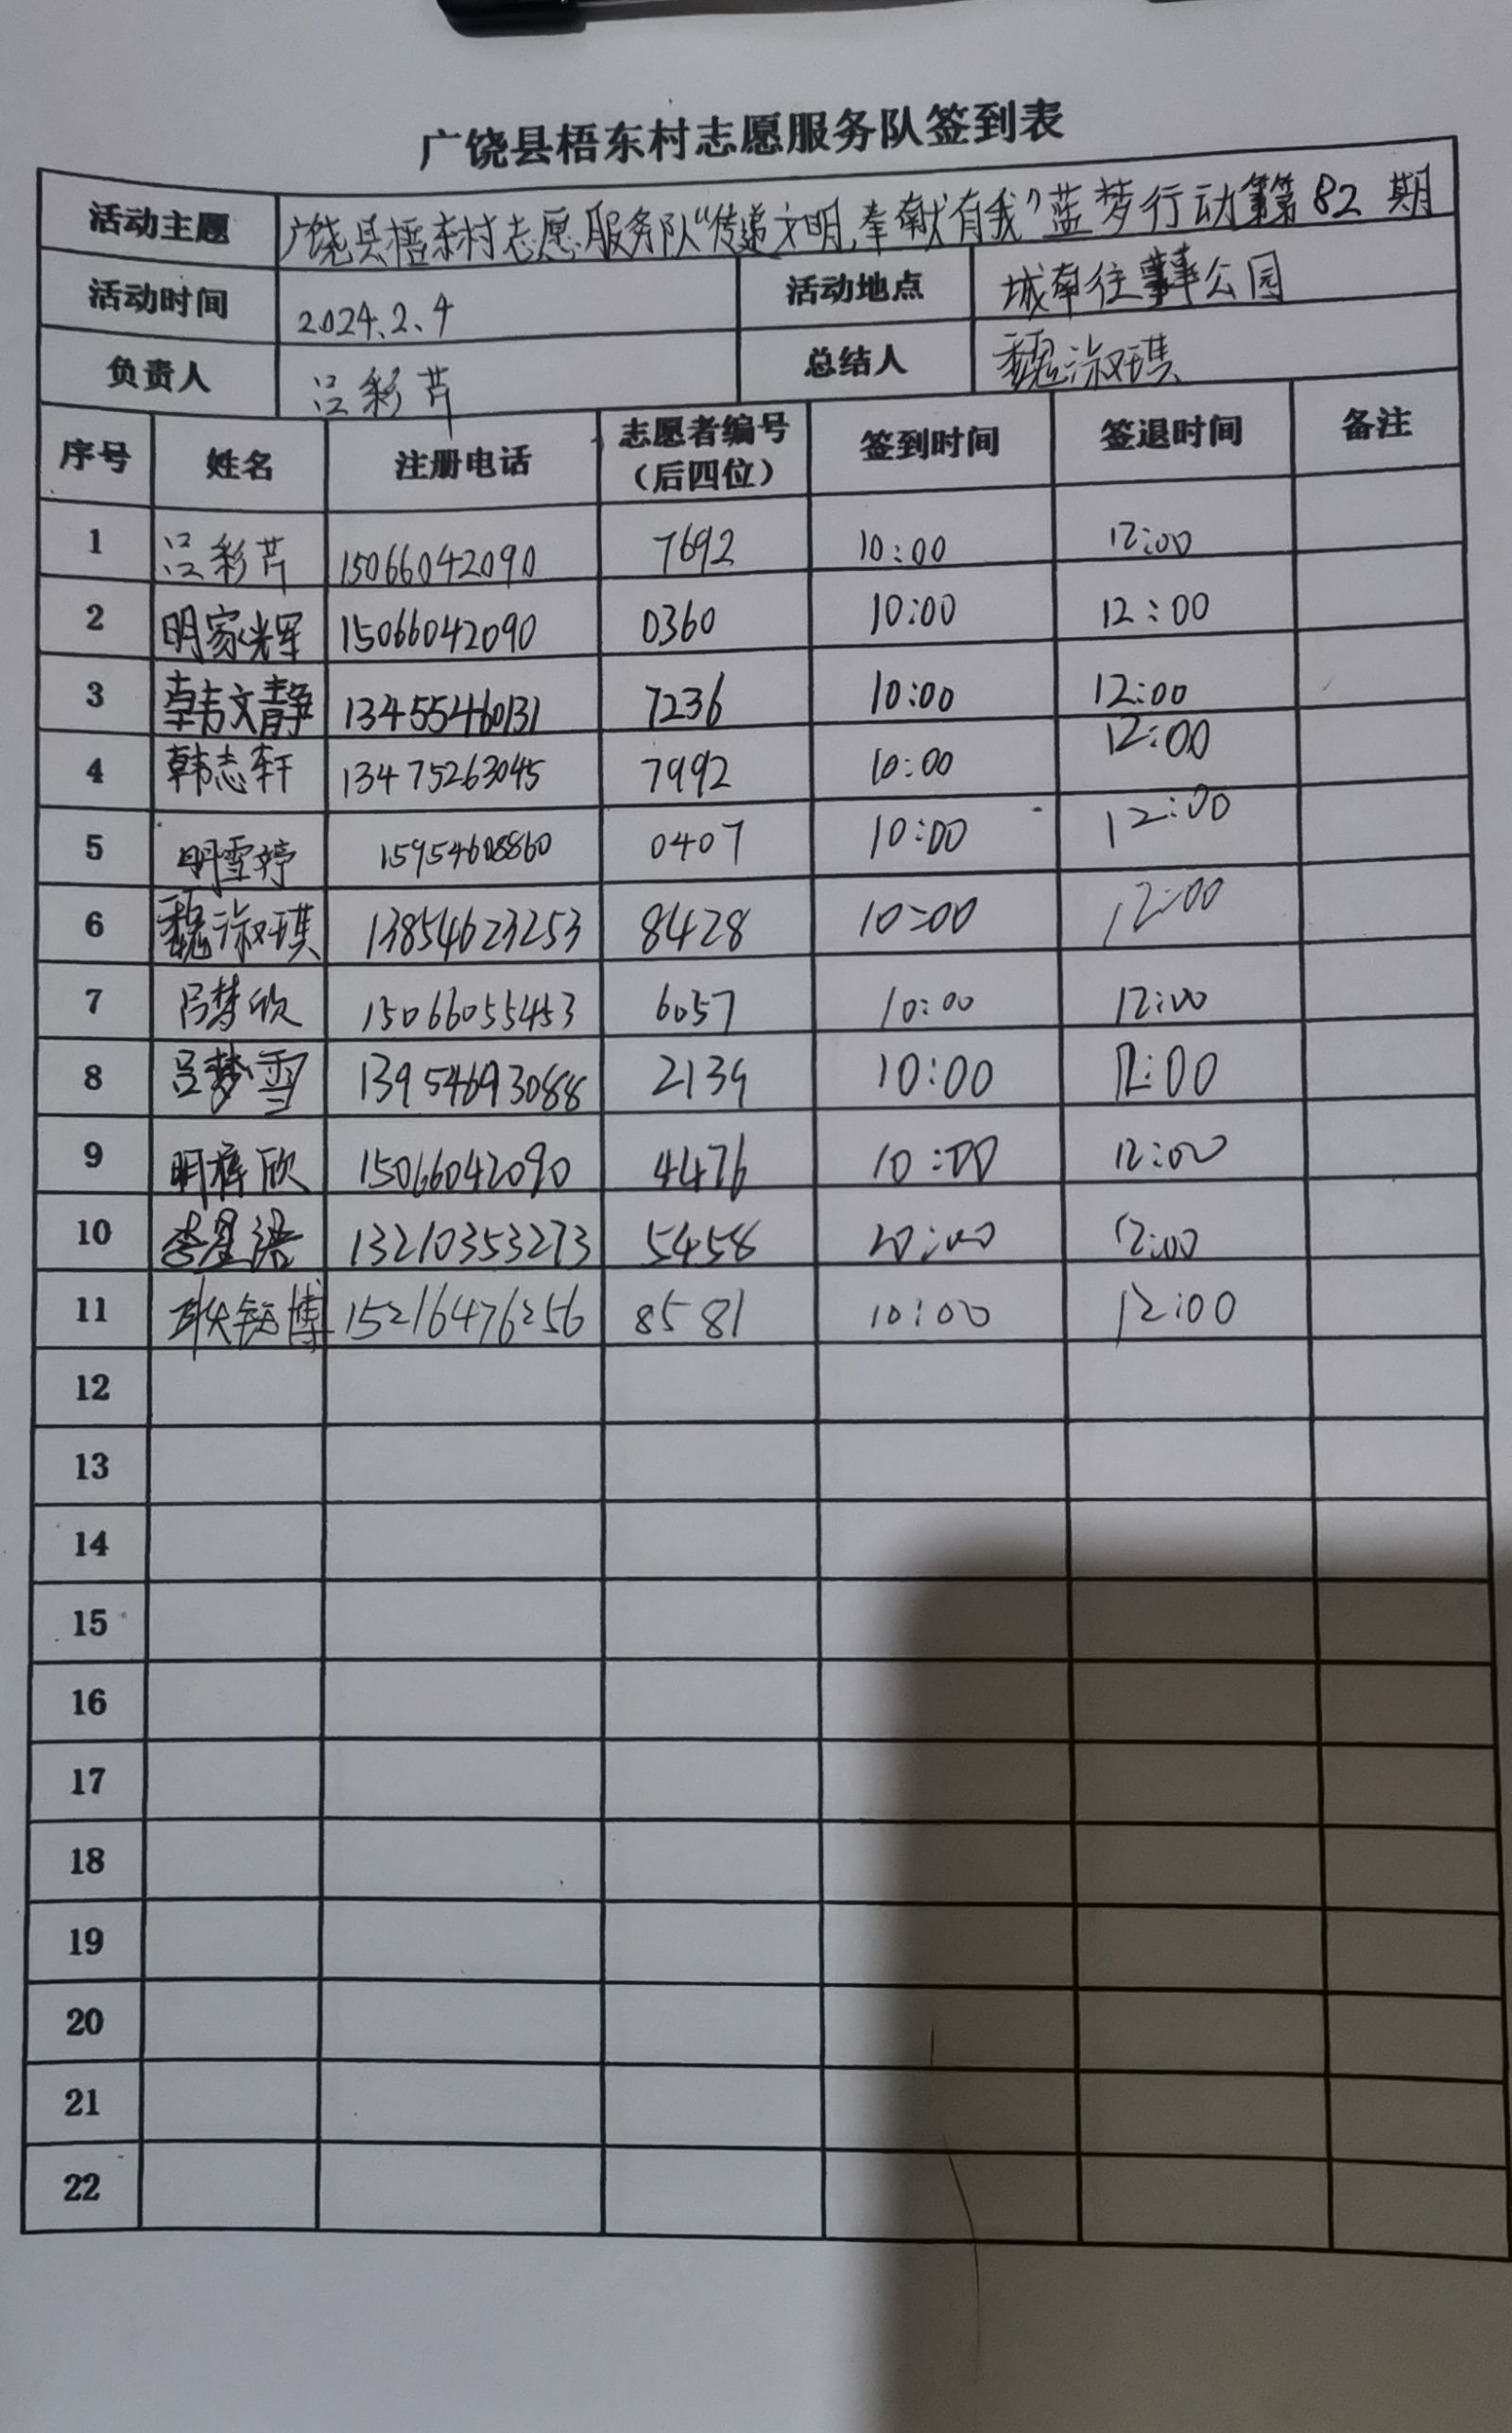 广饶县梧东村志愿服务队签到表
活动主题 广饶县梧东村志愿服务队“传递文明,奉献有我”蓝梦行动第82期
活动时间 2024.2.4 活动地点 城南往事公园
负责人 吕彩芹 总结人 魏淑琪
序号 姓名 注册电话 志愿者编号(后四位) 签到时间 签退时间 备注
1 吕彩芹 15066042090 7692 10:00 12:00
2 明家辉 15066042090 0360 10:00 12:00
3 韩文静 13455460131 7236 10:00 12:00
4 韩志轩 13475263045 7992 10:00 12:00
5 明雪婷 15954608860 0407 10:00 12:00
6 魏淑琪 13854623253 8428 10:00 12:00
7 吕梦欣 15066055453 6057 10:00 12:00
8 吕梦雪 13954693088 2139 10:00 12:00
9 明梓欣 15066042090 4476 10:00 12:00
10 李星语 13210353273 5458 10:00 12:00
11 耿铭博 15216476256 8581 10:00 12:00
12
13
14
15
16
17
18
19
20
21
22